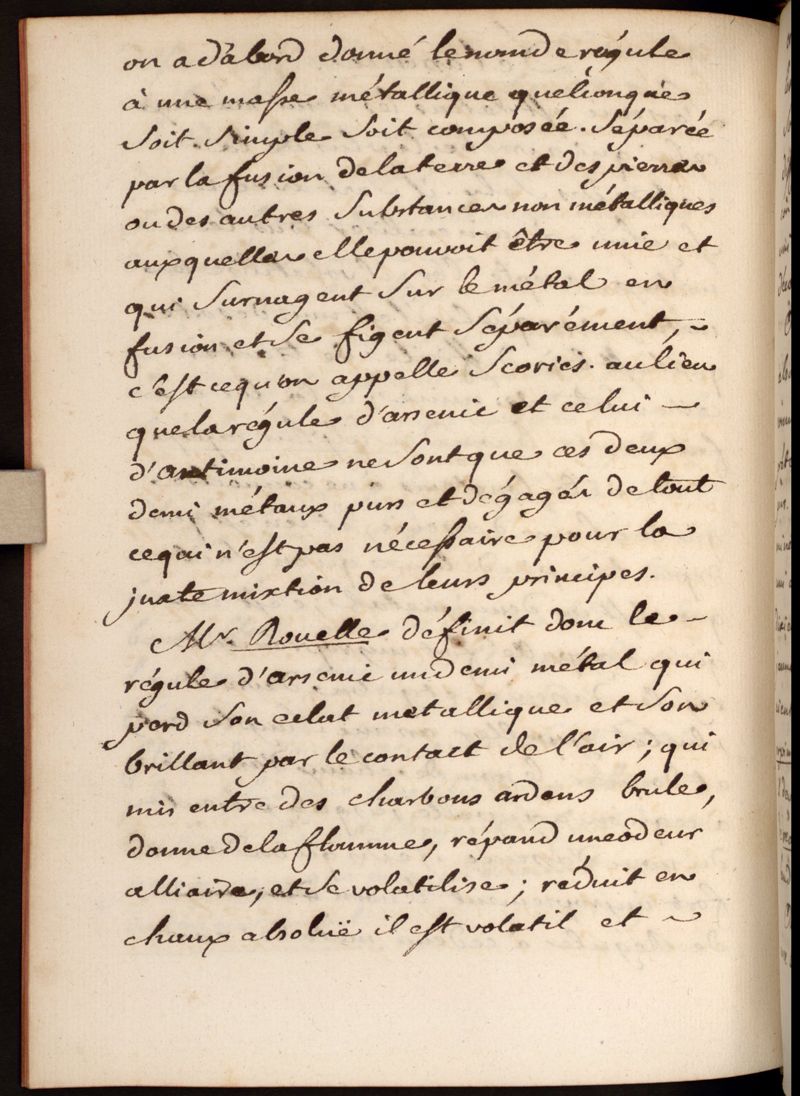 on a d'abord donné le nom de régule
à une masse métallique quélconque
soit simple soit composée. séparée
par la fusion de la terre et des pierres
ou des autres substances non métalliques
auxquelles elle pouvoit être unie et
qui surnagent sur le métal en
fusion et se figent séparément, -
c'est ce qu'on appelle scories. au lieu
que la régule d'arsenic et celui -
d'antimoine ne sont que ces deux
demi métaux purs et dégagés de tout
ce qui n'est pas nécessaire pour la
juste mixtion de leurs principes.
Mr. Rouelle définit donc le -
régule d'arsenic un demi métal qui
perd son eclat metallique et son
brillant par le contact de l'air; qui
mis entre des charbons ardens brule,
donne de la flamme, répand une odeur
alliaire, et se volatilise; réduit en
chaux absoluë il est volatil et -